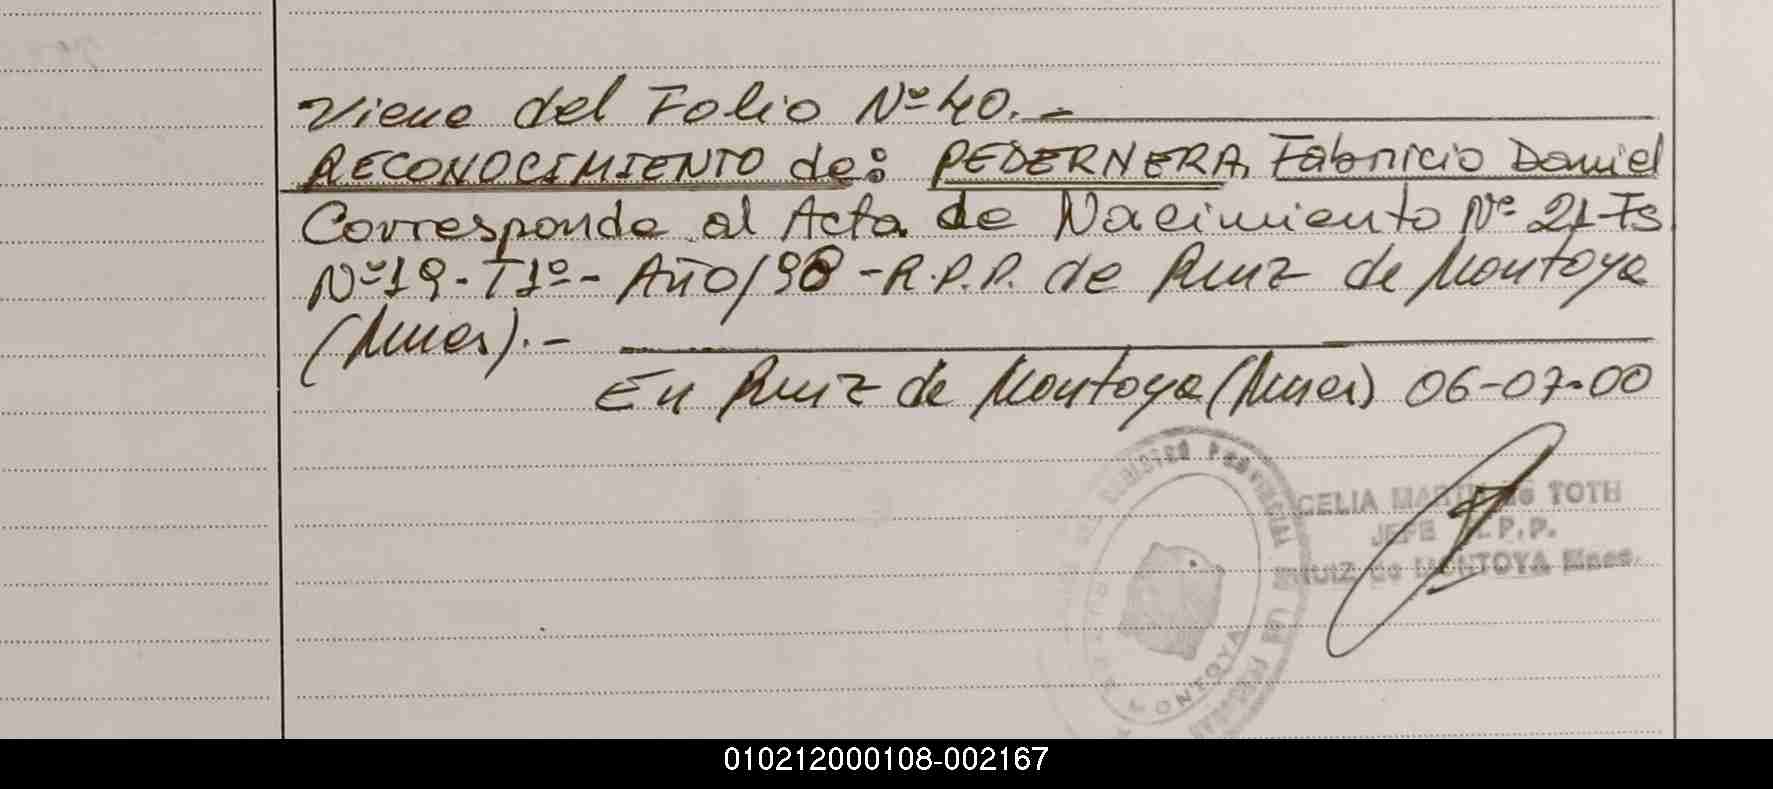 Viene del Folio Nº 40.-
RECONOCIMIENTO de: PEDERNERA, Fabricio Daniel
Corresponde al Acta de Nacimiento Nº 21-Fs
Nº19-T1º- Año/98-R.P.P. de Ruiz de Montoya
(Mnes).-
En Ruiz de Montoya (Mnes) 06-07-00
CELIA de TOTH
JEFE P.P.
RUIZ de MONTOYA Mnes.
MONTOYA
010212000108-002167